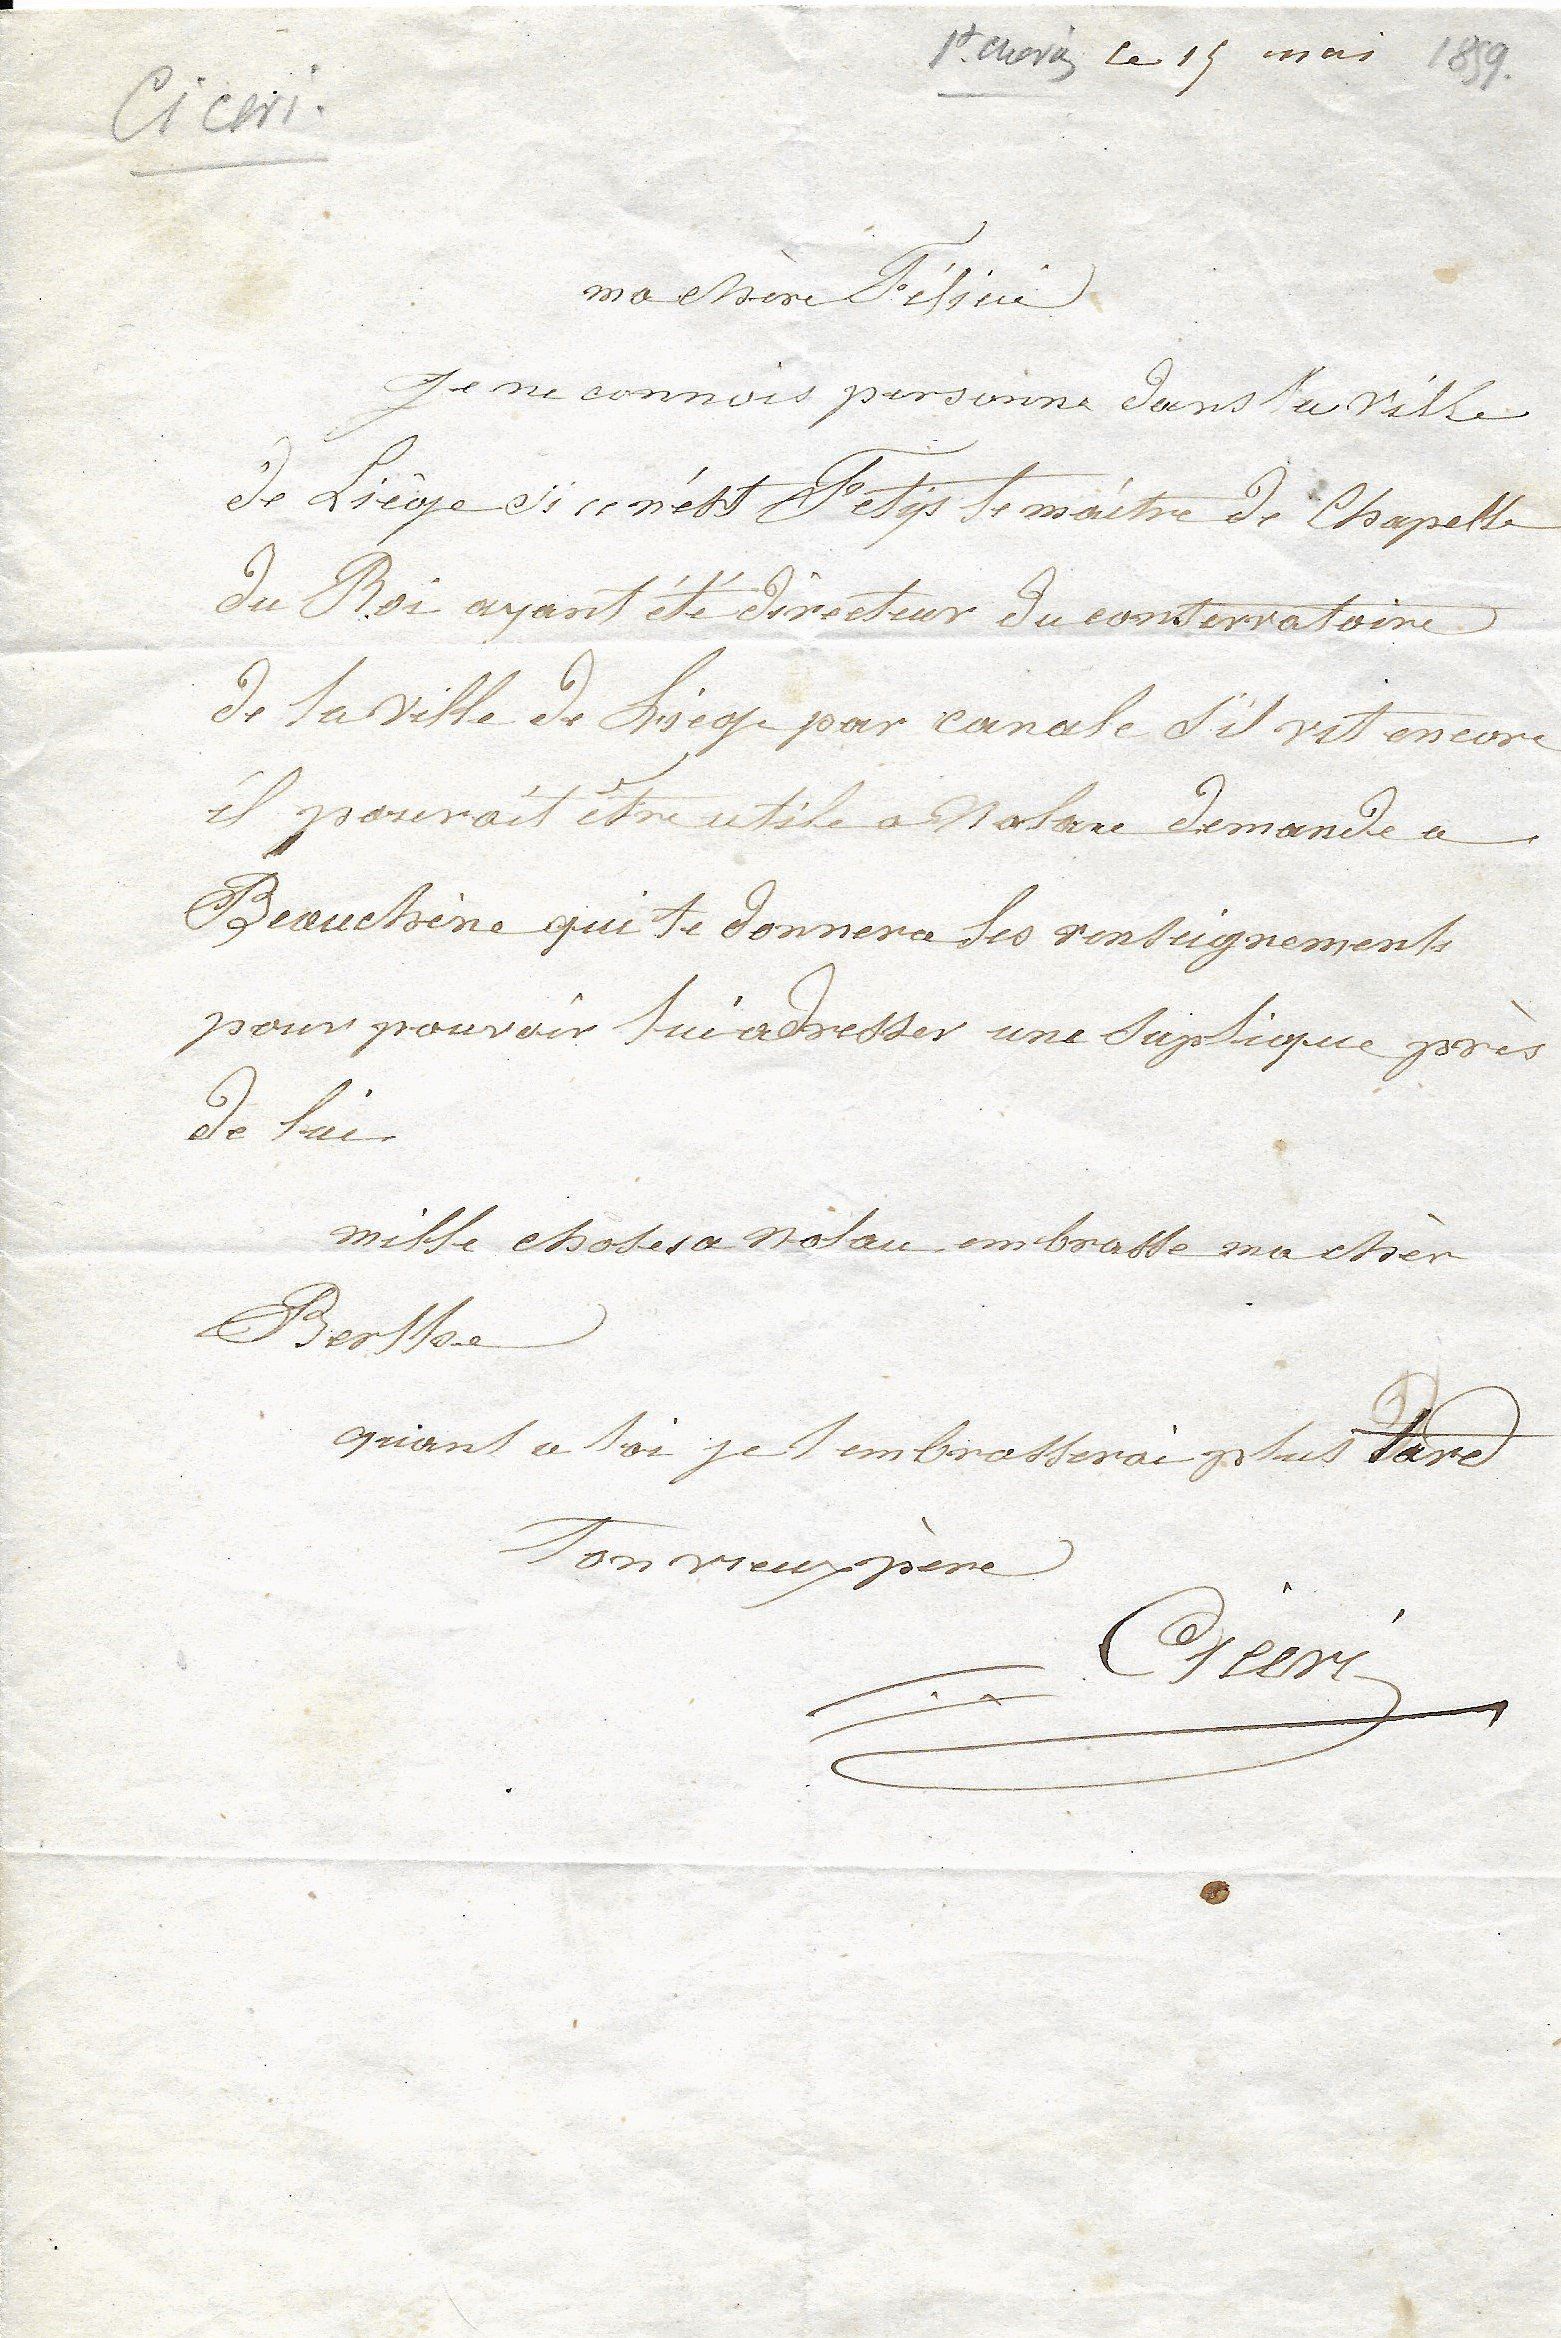 St. Chéron le 15 mai 1859.
Ciceri.
ma chère Félicie
Je ne connois personne dans la ville
de Liêge si ce n'est Fetys le maître de Chapelle
du Roi ayant été directeur du conservatoire
de la ville de Liege par canale s'il vit encore
il pouroit être utile a Nolau demande a
Beauchène qui te donnera les renseignements
pour pouvoir lui adresser une suplique près
de lui
mille choses a Nolau embrasse ma chèr
Berthe
quant a toi je t'embrasserai plus tard
Ton vieux père
Ciceri